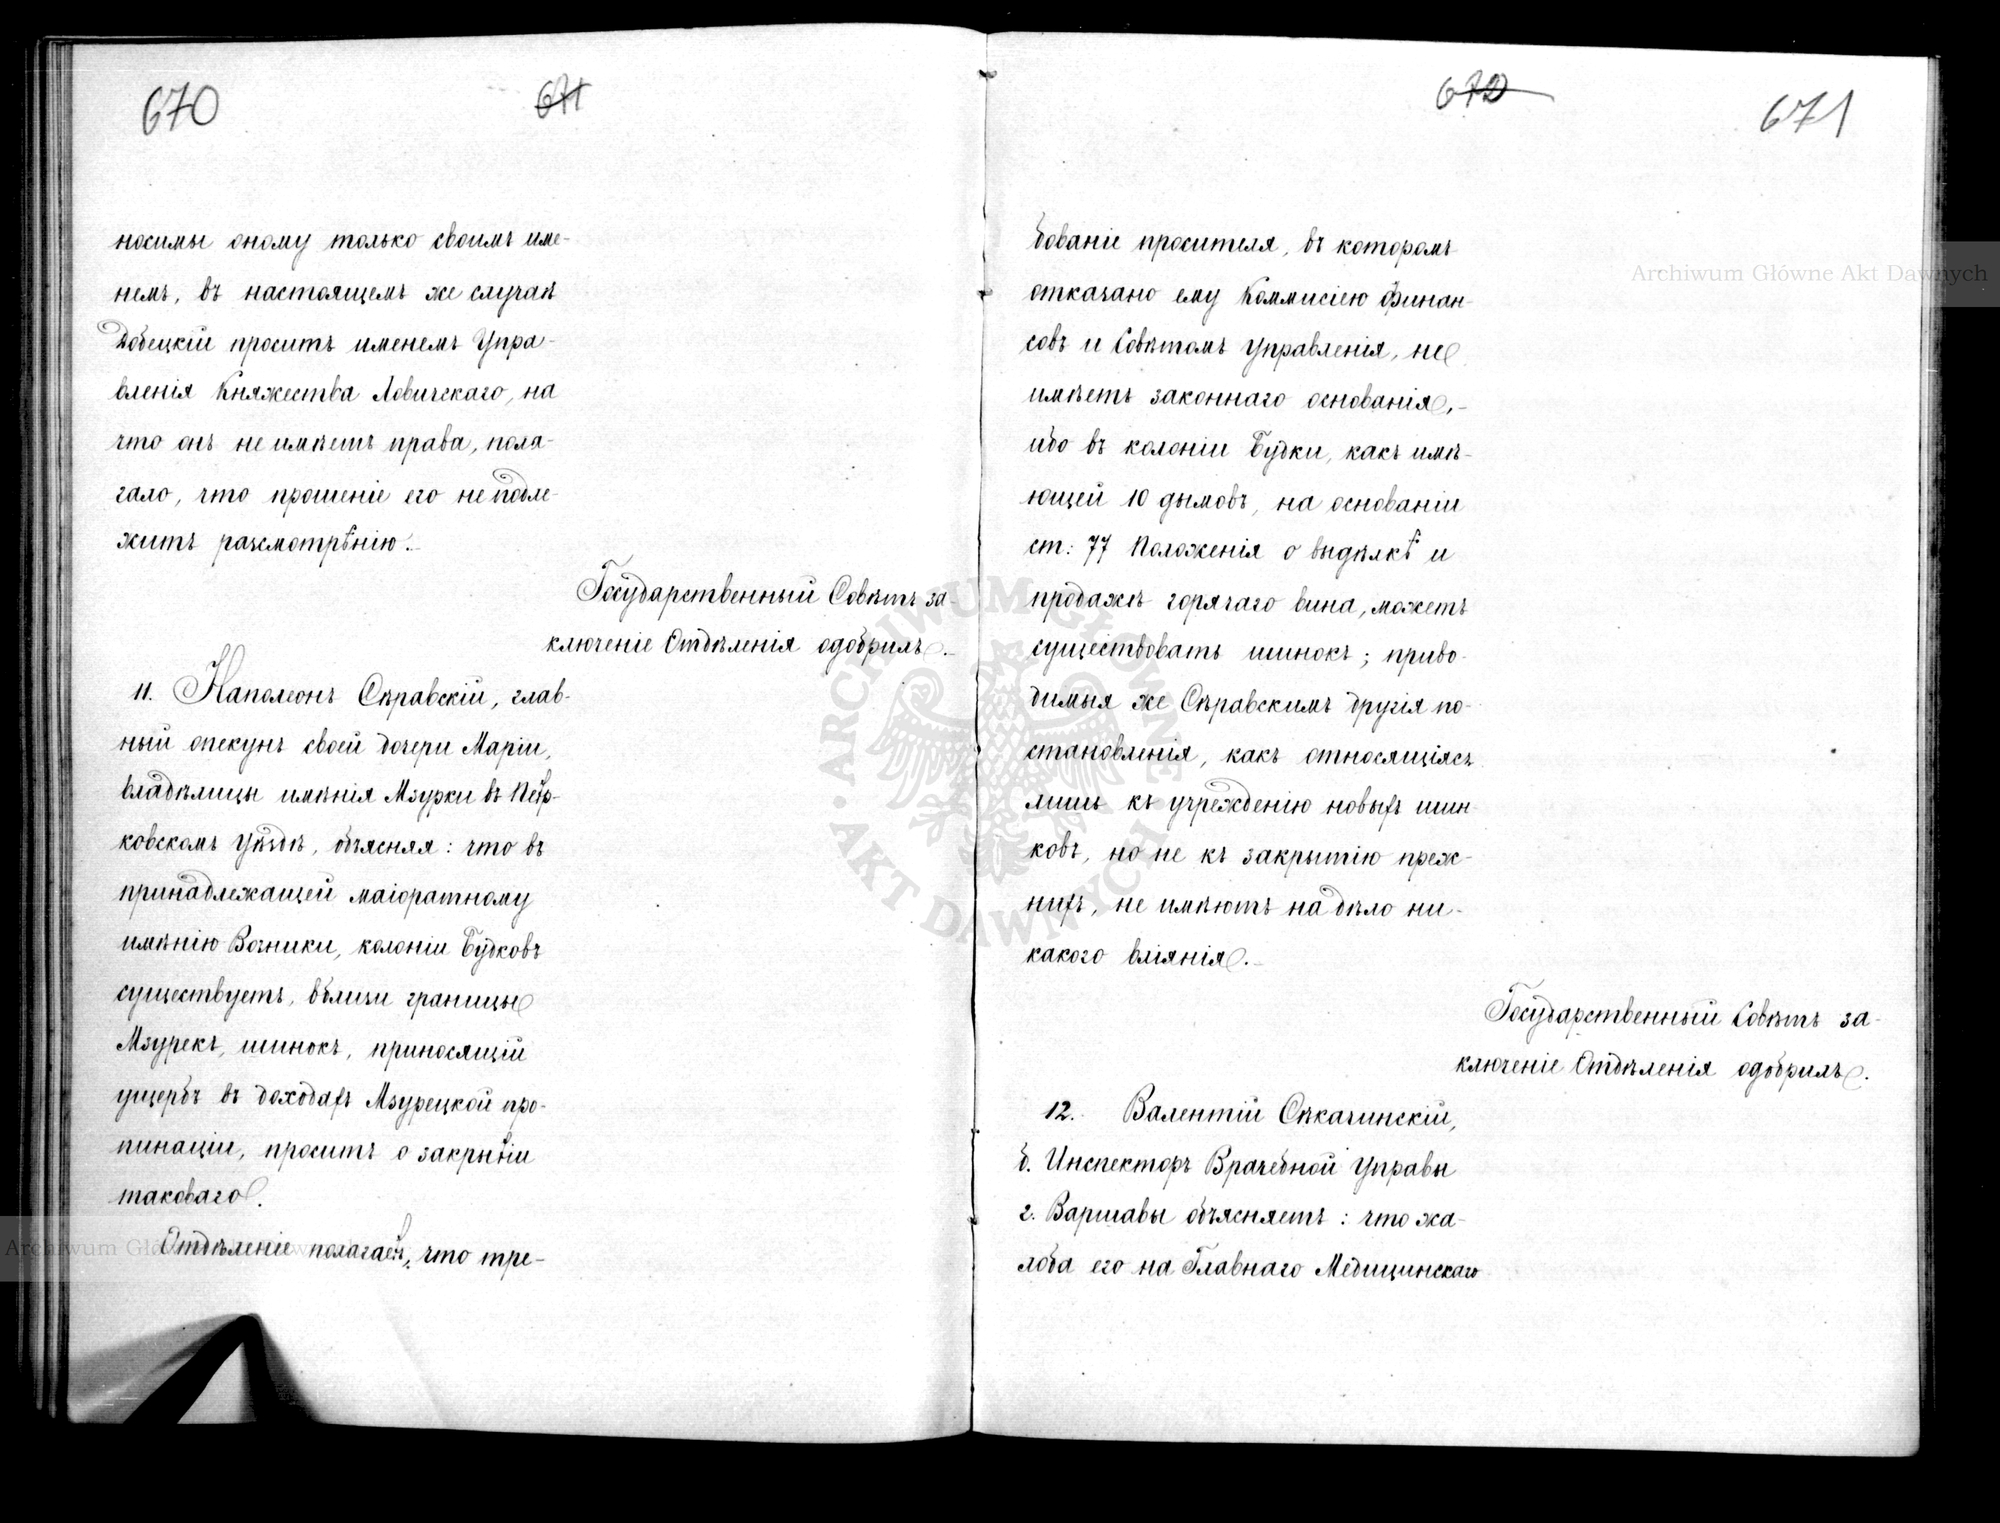 670
671
носимы оному только своимъ име-
немъ, въ настоящемъ же случаѣ
Добецкій проситъ именемъ Упра-
вленія Княжества Ловичскаго, на
что онъ не имѣетъ права, пола-
гало, что прошеніе его не подле-
житъ разсмотрѣнію.
Государственный Совѣтъ за-
ключеніе Отдѣленія одобрилъ.
11. Наполеонъ Сѣравскій, глав-
ный опекунъ своей дочери Маріи,
владѣлицы имѣнія Мзурки въ Петр-
ковскомъ Уѣздѣ, объясняя: что въ
принадлежащей маіоратному
имѣнію Возники, колоніи Будковъ
существуетъ, вблизи границы
Мзурекъ, шинокъ, приносящій
ущербъ въ доходахъ Мзурецкой про-
пинаціи, проситъ о закрытіи
таковаго.
Отдѣленіе полагаетъ, что тре-
672
671
бованіе просителя, въ которомъ
отказано ему Коммисіею Финан-
совъ и Совѣтомъ Управленія, не
имѣетъ законнаго основанія,
ибо въ колоніи Будки, какъ имѣ-
ющей 10 дымовъ, на основаніи
ст: 77 Положенія о выдѣлкѣ и
продажѣ горячаго вина, можетъ
существовать шинокъ; приво-
димыя же Сѣравскимъ другія по-
становленія, какъ относящіясъ
лишь къ учрежденію новыхъ шин-
ковъ, но не къ закрытію преж-
нихъ, не имѣютъ на дѣло ни-
какого вліянія.
Государственный Совѣтъ за-
ключеніе Отдѣленія одобрилъ.
12. Валентій Сѣкачинскій,
б. Инспекторъ Врачебной Управы
г. Варшавы объясняетъ: что жа-
лоба его на Главнаго Медицинскаго
Archiwum Główne Akt Dawnych
ARCHIWUM GŁÓWNE AKT DAWNYCH